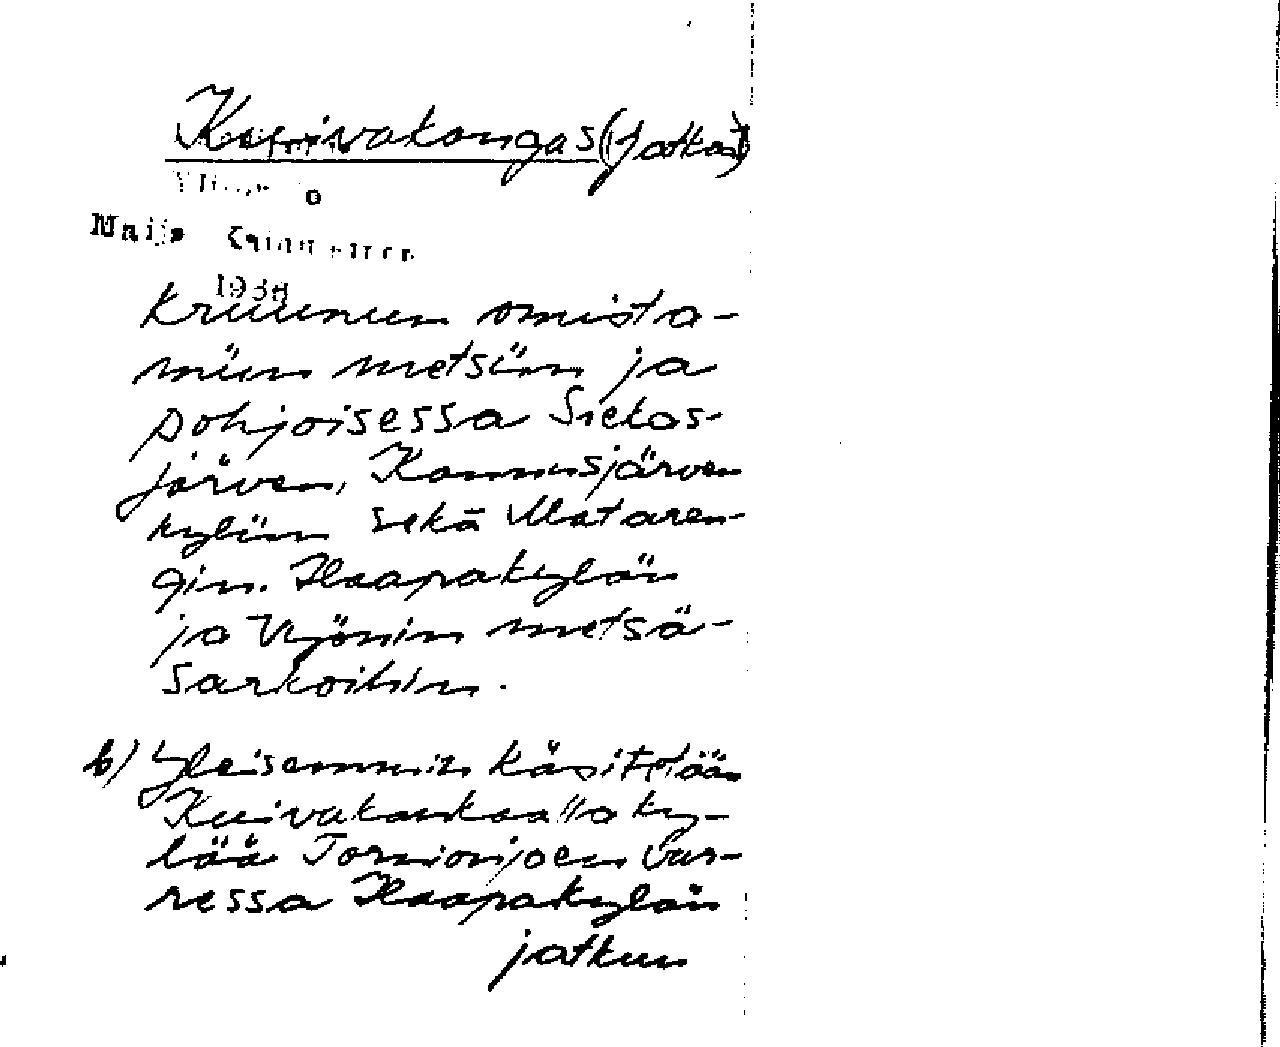 Kuivakangas (jatkoa)
Maija
1938
kruunun omista-
miin metsiin ja
pohjoisessa Sietas-
järven, Kannusjärven
kyliin sekä Mataren-
gin. Haapakylän
ja Väjönin metsä-
sarkoihin.
b) Yleisemmin käsitetään
Kuivakankaalla ky-
lää Tornionjoen var-
ressa Haapakylän
jatkuu